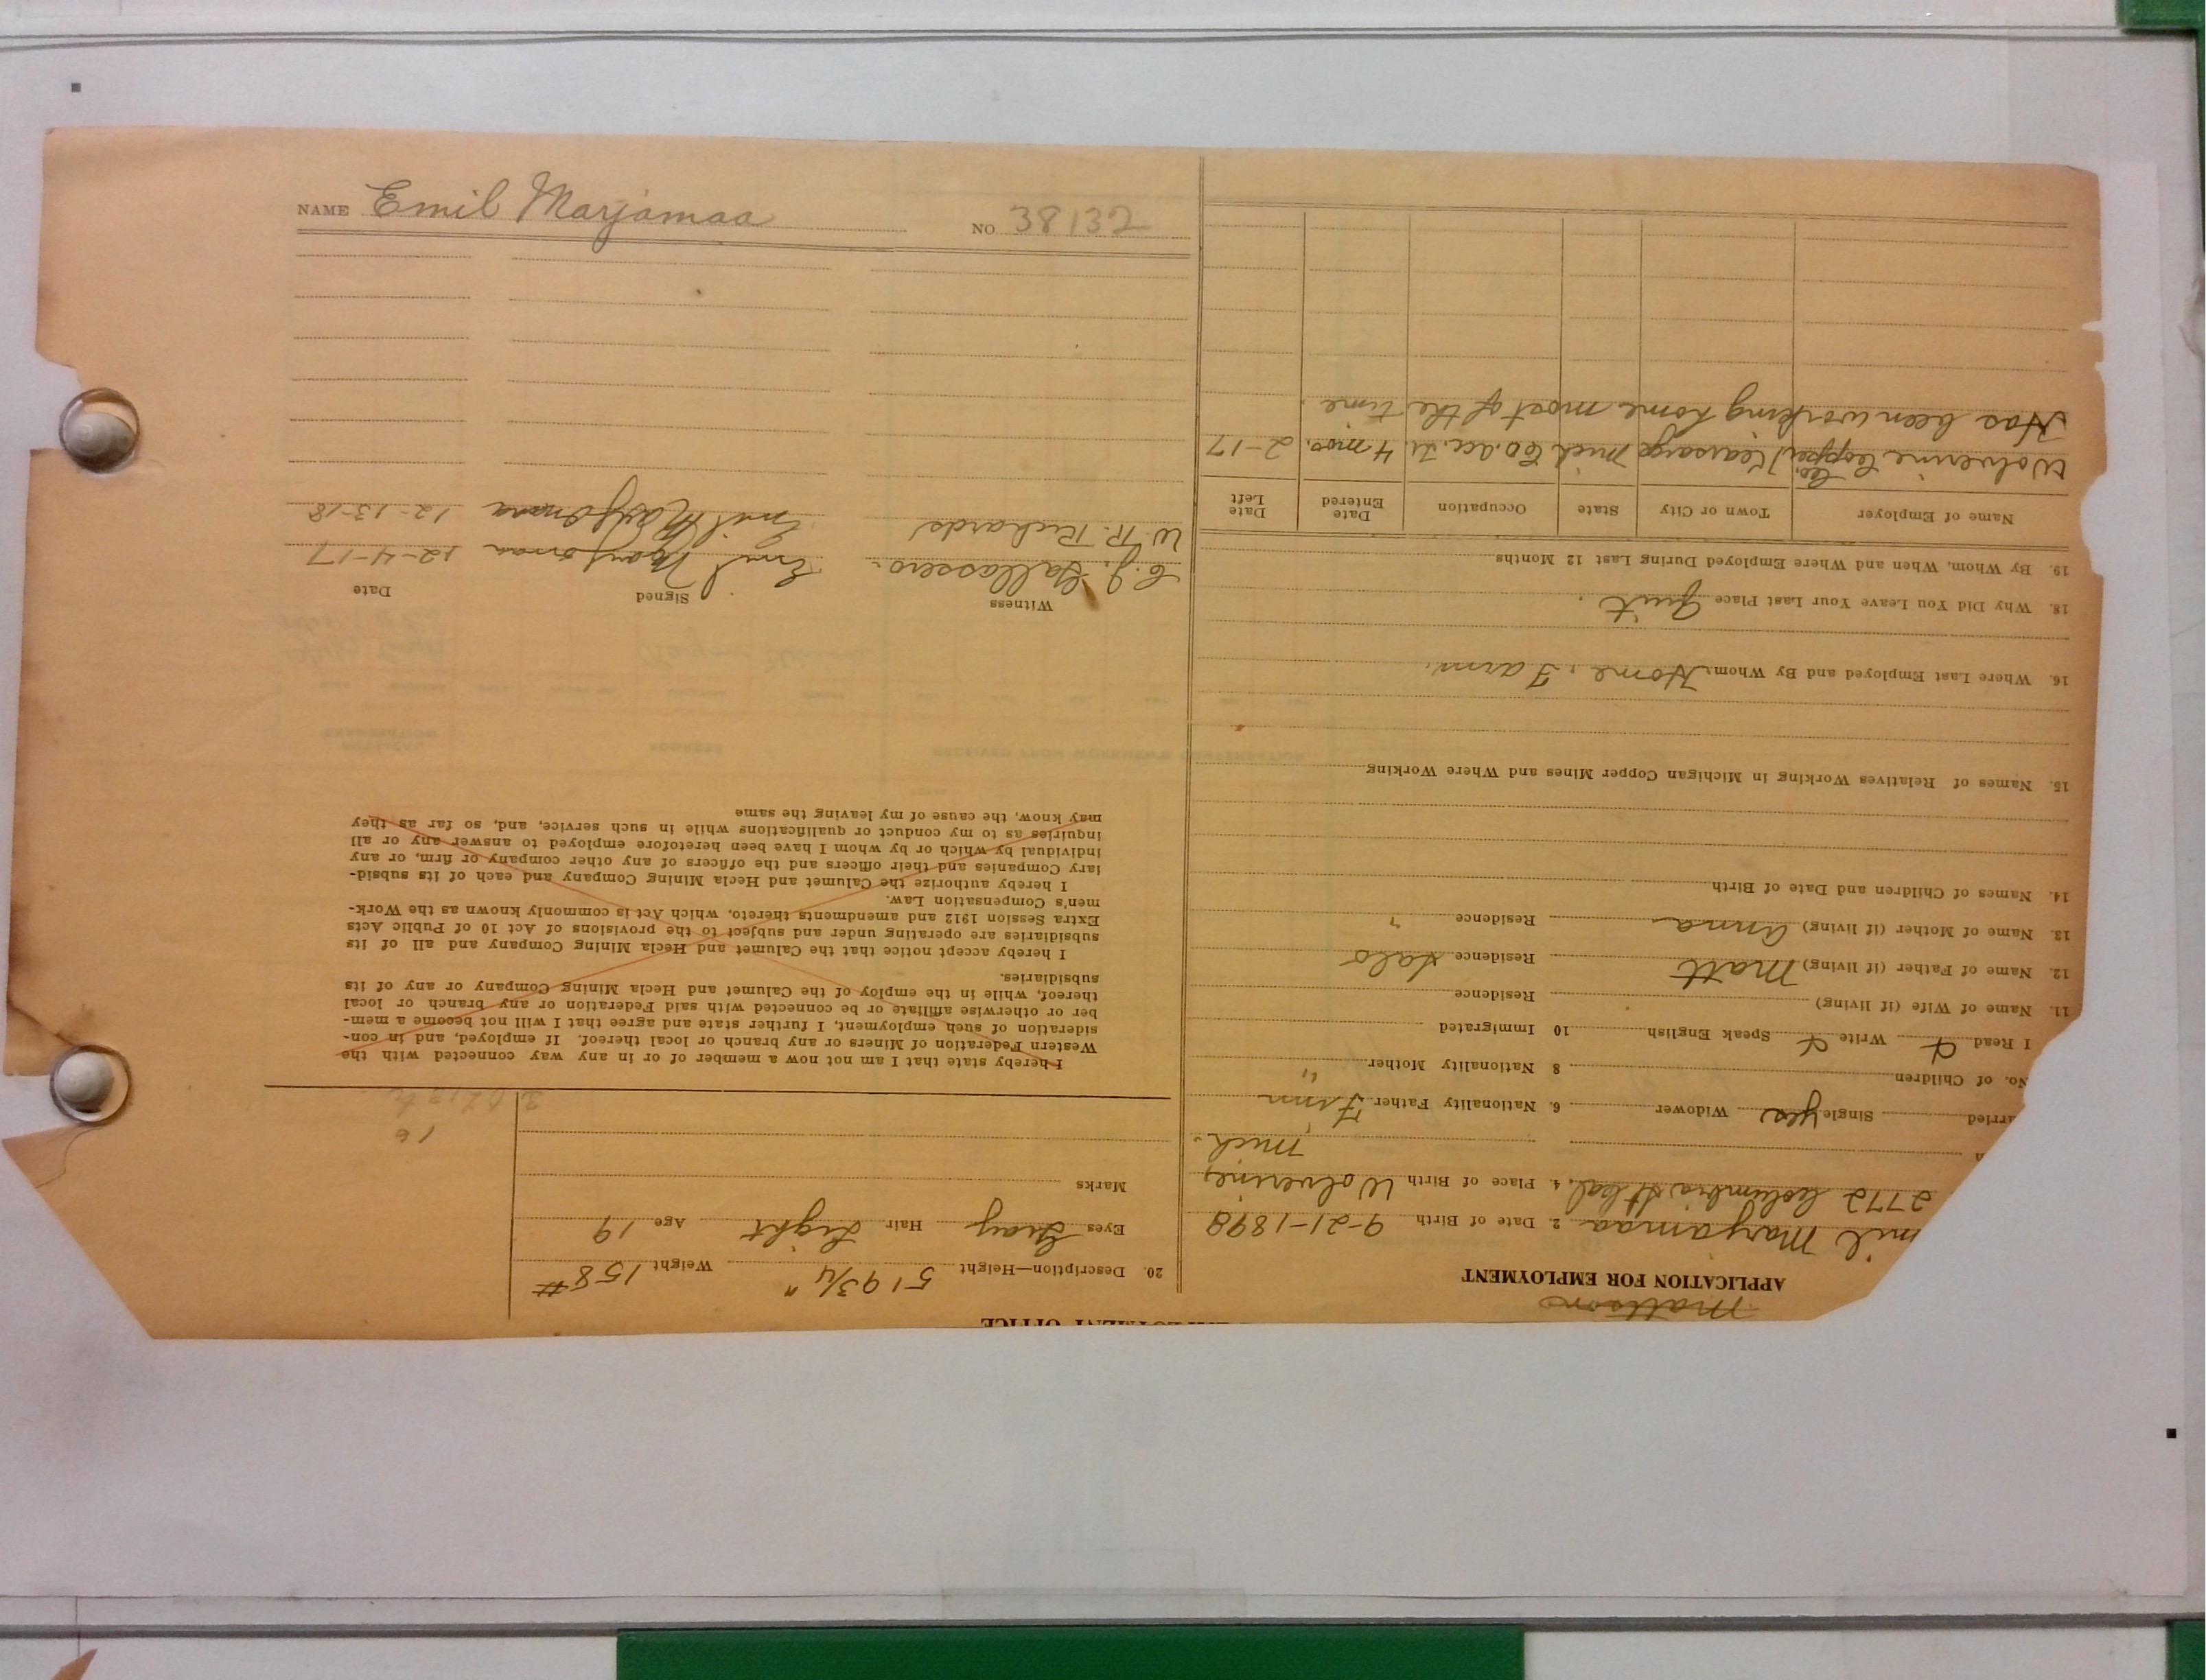 NAME Emil Marjamaa NO. 38132
Mattson
APPLICATION FOR EMPLOYMENT
mil Marjamaa 2. Date of Birth 9-21-1898
2772 Columbia St Cal. 4. Place of Birth Wolverine,
Mich.
arried Single yes Widower 6. Nationality Father Finn
No. of Children 8 Nationality Mother "
I Read Write Speak English 10 Immigrated
11. Name of Wife (if living) Residence
12. Name of Father (if living) Matt Residence Salo
13. Name of Mother (if living) Anna Residence "
14. Names of Children and Date of Birth
15. Names of Relatives Working in Michigan Copper Mines and Where Working
16. Where Last Employed and By Whom Home, Farm.
18. Why Did You Leave Your Last Place Quit.
19. By Whom, When and Where Employed During Last 12 Months
Name of Employer Town or City State Occupation Date Entered Date Left
Wolverine Copper Co. Kearsarge Mich 4 mos. 2-17
Has been working home most of the time.
EMPLOYMENT OFFICE
20. Description—Height 5' 9 3/4" Weight 158#
Eyes Gray Hair Light Age 19
Marks
16
I hereby state that I am not now a member of or in any way connected with the
Western Federation of Miners or any branch or local thereof. If employed, and in con-
sideration of such employment, I further state and agree that I will not become a mem-
ber or otherwise affiliate or be connected with said Federation or any branch or local
thereof, while in the employ of the Calumet and Hecla Mining Company or any of its
subsidiaries.
I hereby accept notice that the Calumet and Hecla Mining Company and all of its
subsidiaries are operating under and subject to the provisions of Act 10 of Public Acts
Extra Session 1912 and amendments thereto, which Act is commonly known as the Work-
men's Compensation Law.
I hereby authorize the Calumet and Hecla Mining Company and each of its subsid-
iary Companies and their officers and the officers of any other company or firm, or any
individual by which or by whom I have been heretofore employed to answer any or all
inquiries as to my conduct or qualifications while in such service, and, so far as they
may know, the cause of my leaving the same
Witness Signed Date
Emil Marjomaa 12-4-17
W. R. Richards Emil Marjomaa 12-13-18